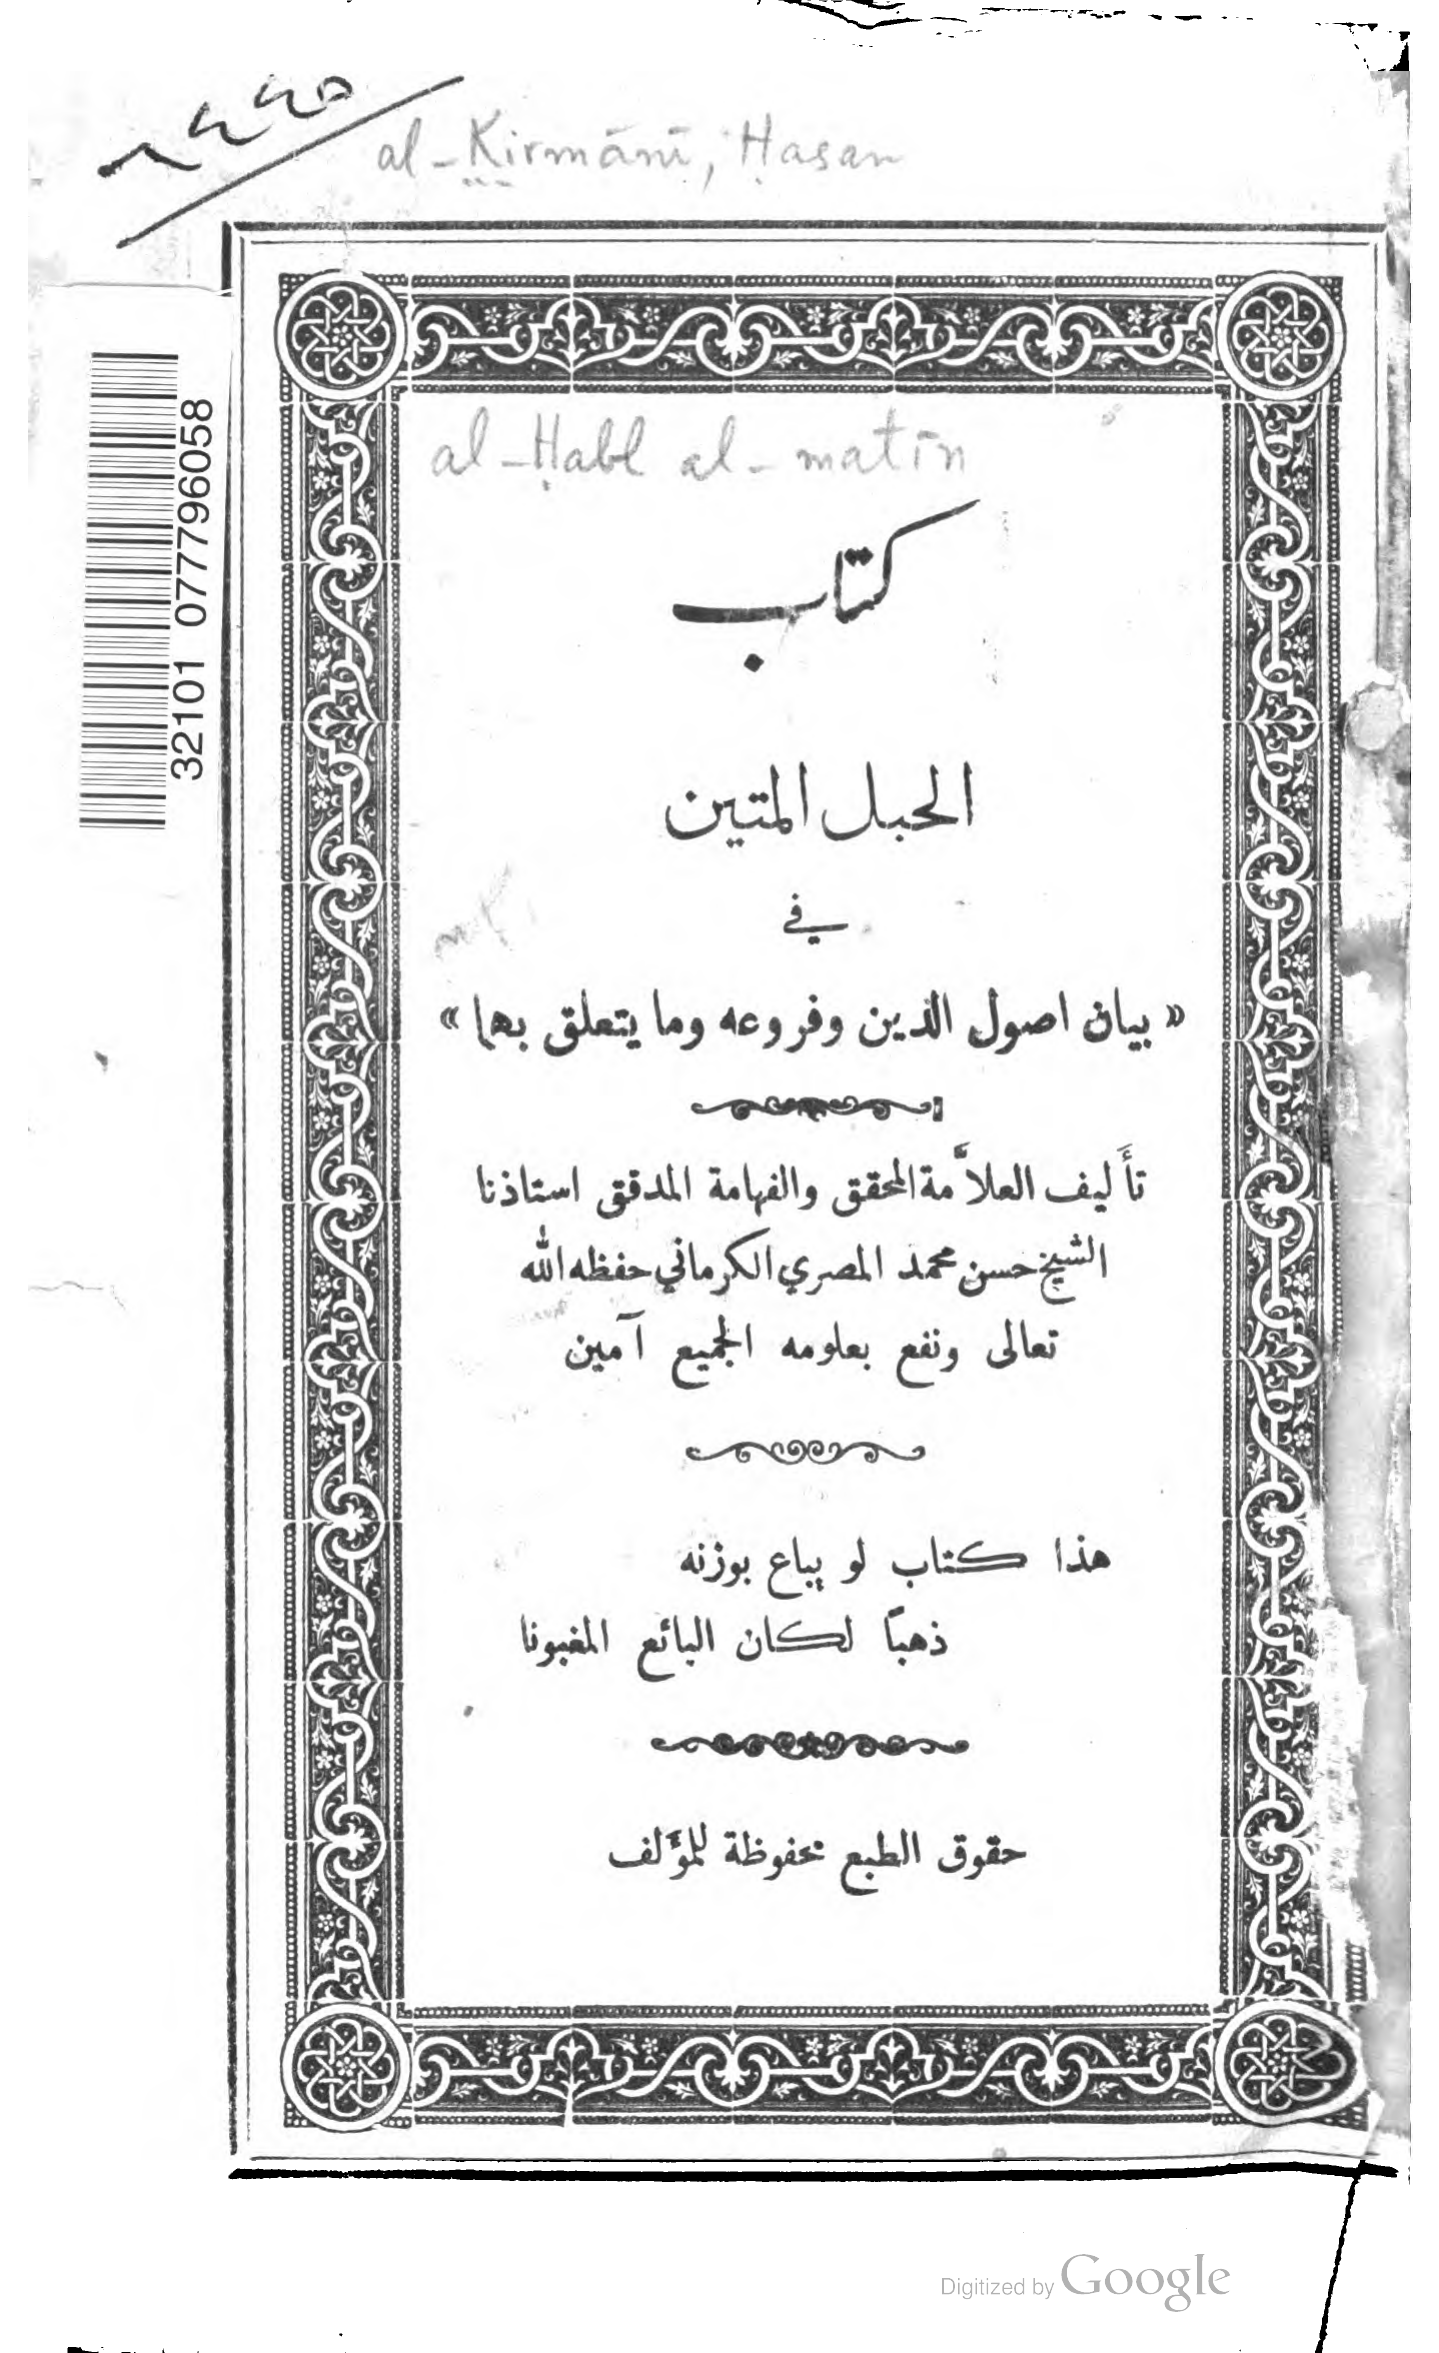 al-Kirmānī, Ḥasan
al-Ḥabl al-matīn
32101 077796058
كتاب
الحبل المتين
في
« بيان اصول الدين وفروعه وما يتعلق بهما »
تأليف العلاَّمة المحقق والفهامة المدقق استاذنا
الشيخ حسن محمد المصري الكرماني حفظه الله
تعالى ونفع بعلومه الجميع آمين
هذا كتاب لو يباع بوزنه
ذهباً لكان البائع المغبونا
حقوق الطبع محفوظة للمؤَلف
Digitized by Google